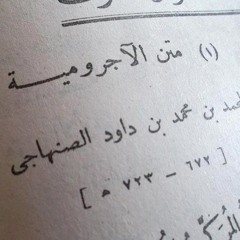 (١) متن الآجرومية
بن محمد بن داود الصنهاجى
[ ٦٧٢ – ٧٢٣ هـ ]